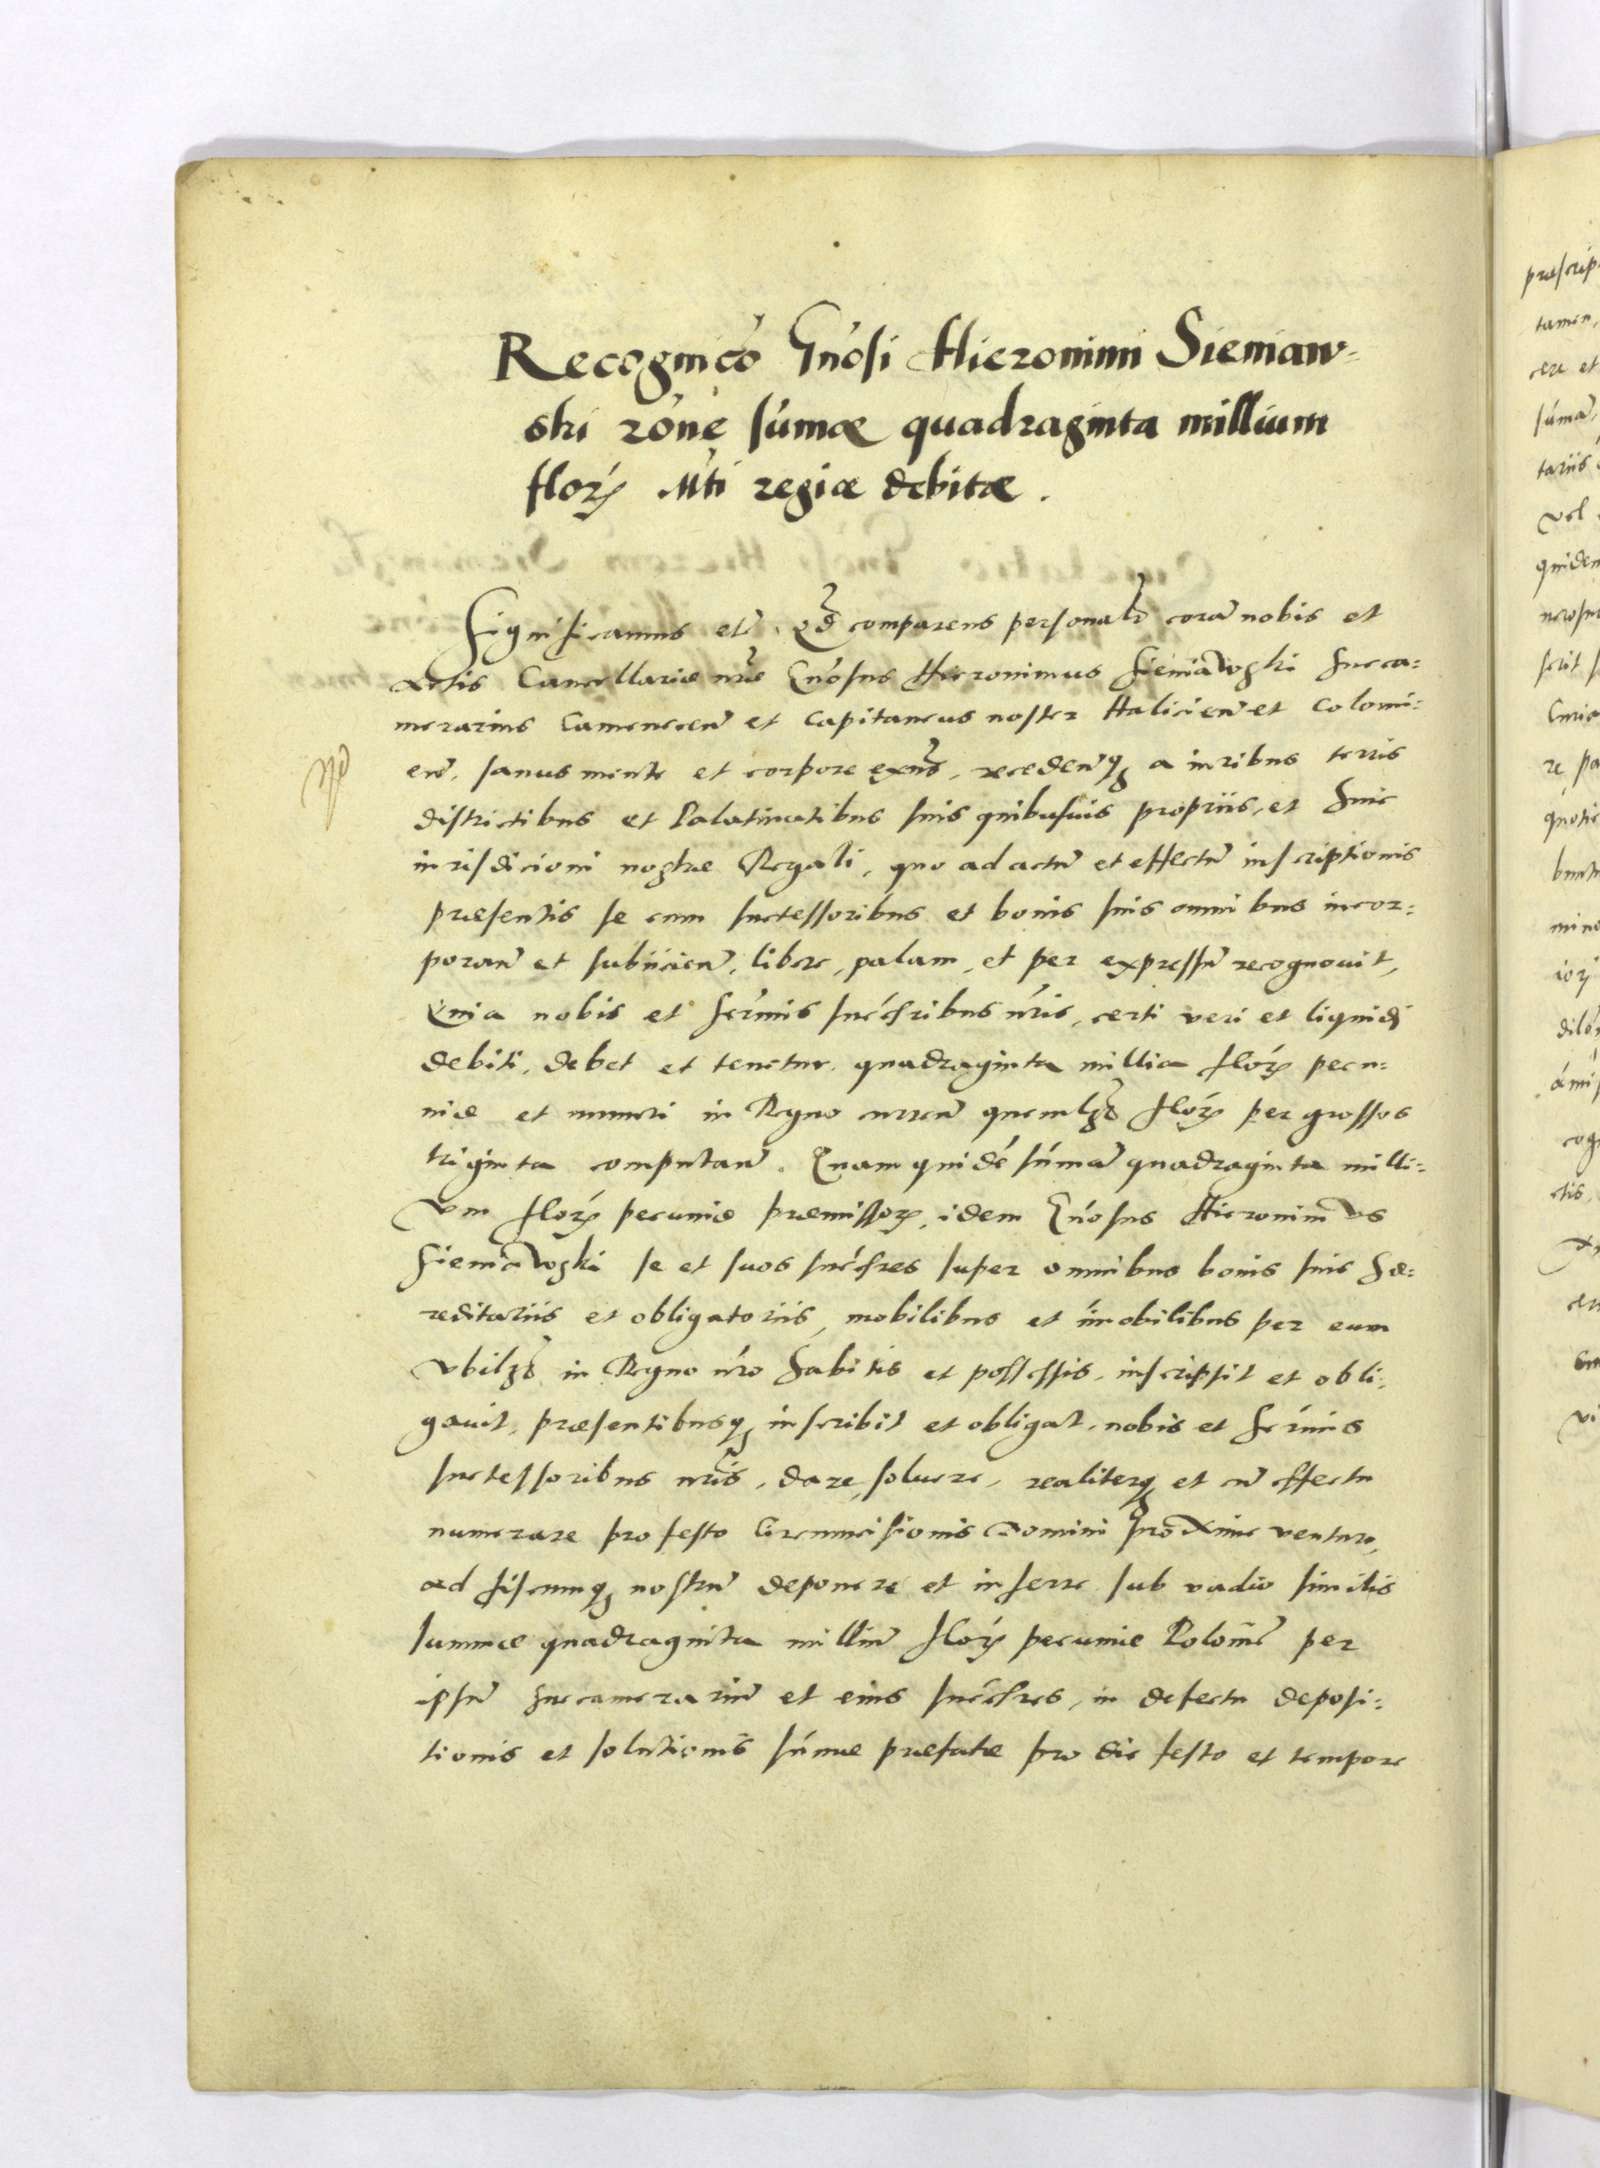 Recognicō Gn̄osi Hieronimi Sieniaw=
ski rōne sum̄ae quadraginta millium
florꝝ Mti regiae debitae.
Significamus etc̄. Qd̄ comparens personalr̄ corā nobis et
Actis Cancellariae nr̄ae Gn̄osus Hieronimus SieniaWski Succa=
merarius Camenecen̄ et Capitaneus noster Halicien̄ et Colomi=
en̄, sanus mente et corpore exn̄s, recedenꝗ a iuribus terris
districtibus et Palatinatibus suis quibusuis propriis, et huic
iurisdicioni nostrae Regali, quo ad actū et effectū inscriptionis
praesentis se cum successoribus et bonis suis omnibus incor=
poran̄ et subiicien̄, libere, palam, et per expressū recognouit,
Quia nobis et Ser̄mis succ̄oribus nr̄is, certi veri et liquidi
debiti, debet et tenetur quadraginta millia florꝝ pecu=
niae et numeri in Regno curren̄ quemlꝫ florꝝ per grossos
triginta computan̄. Quam quidē sum̄ā quadraginta milli=
Vm florꝝ pecuniae praemissorꝝ, idem Gn̄osus HieronimVs
SieniaWski se et suos succ̄ores super omnibus bonis suis hae=
reditariis et obligatoriis, mobilibus et im̄obilibus per eum
Vbilꝫ in Regno nr̄o habitis et possessis, inscripsit et obli=
gauit, praesentibusqꝫ inscribit et obligat, nobis et Ser̄mis
successoribus nr̄is, dare, soluere, realiterqꝫ et cū effectu
numerare pro festo Circumcisionis Domini proXime venturo,
ad fiscumqꝫ nostrū deponere et inferre sub vadio similis
summae quadraginta milliū florꝝ pecuniae Polon̄ per
ipsū Succamerariū et eius succ̄ores, in defectu deposi=
tionis et solutionis sum̄ae praefatae pro die festo et tempore